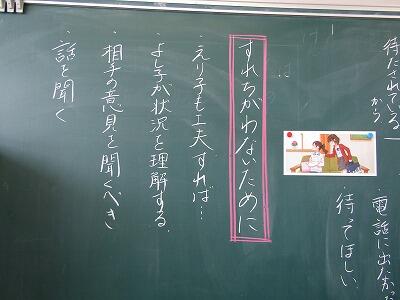 待たされている
から
電話に出なかった
待ってほしい
すれちがわないために
・えり子も工夫すれば…
・よし子が状況を理解する。
・相手の意見を聞くべき
・話を聞く